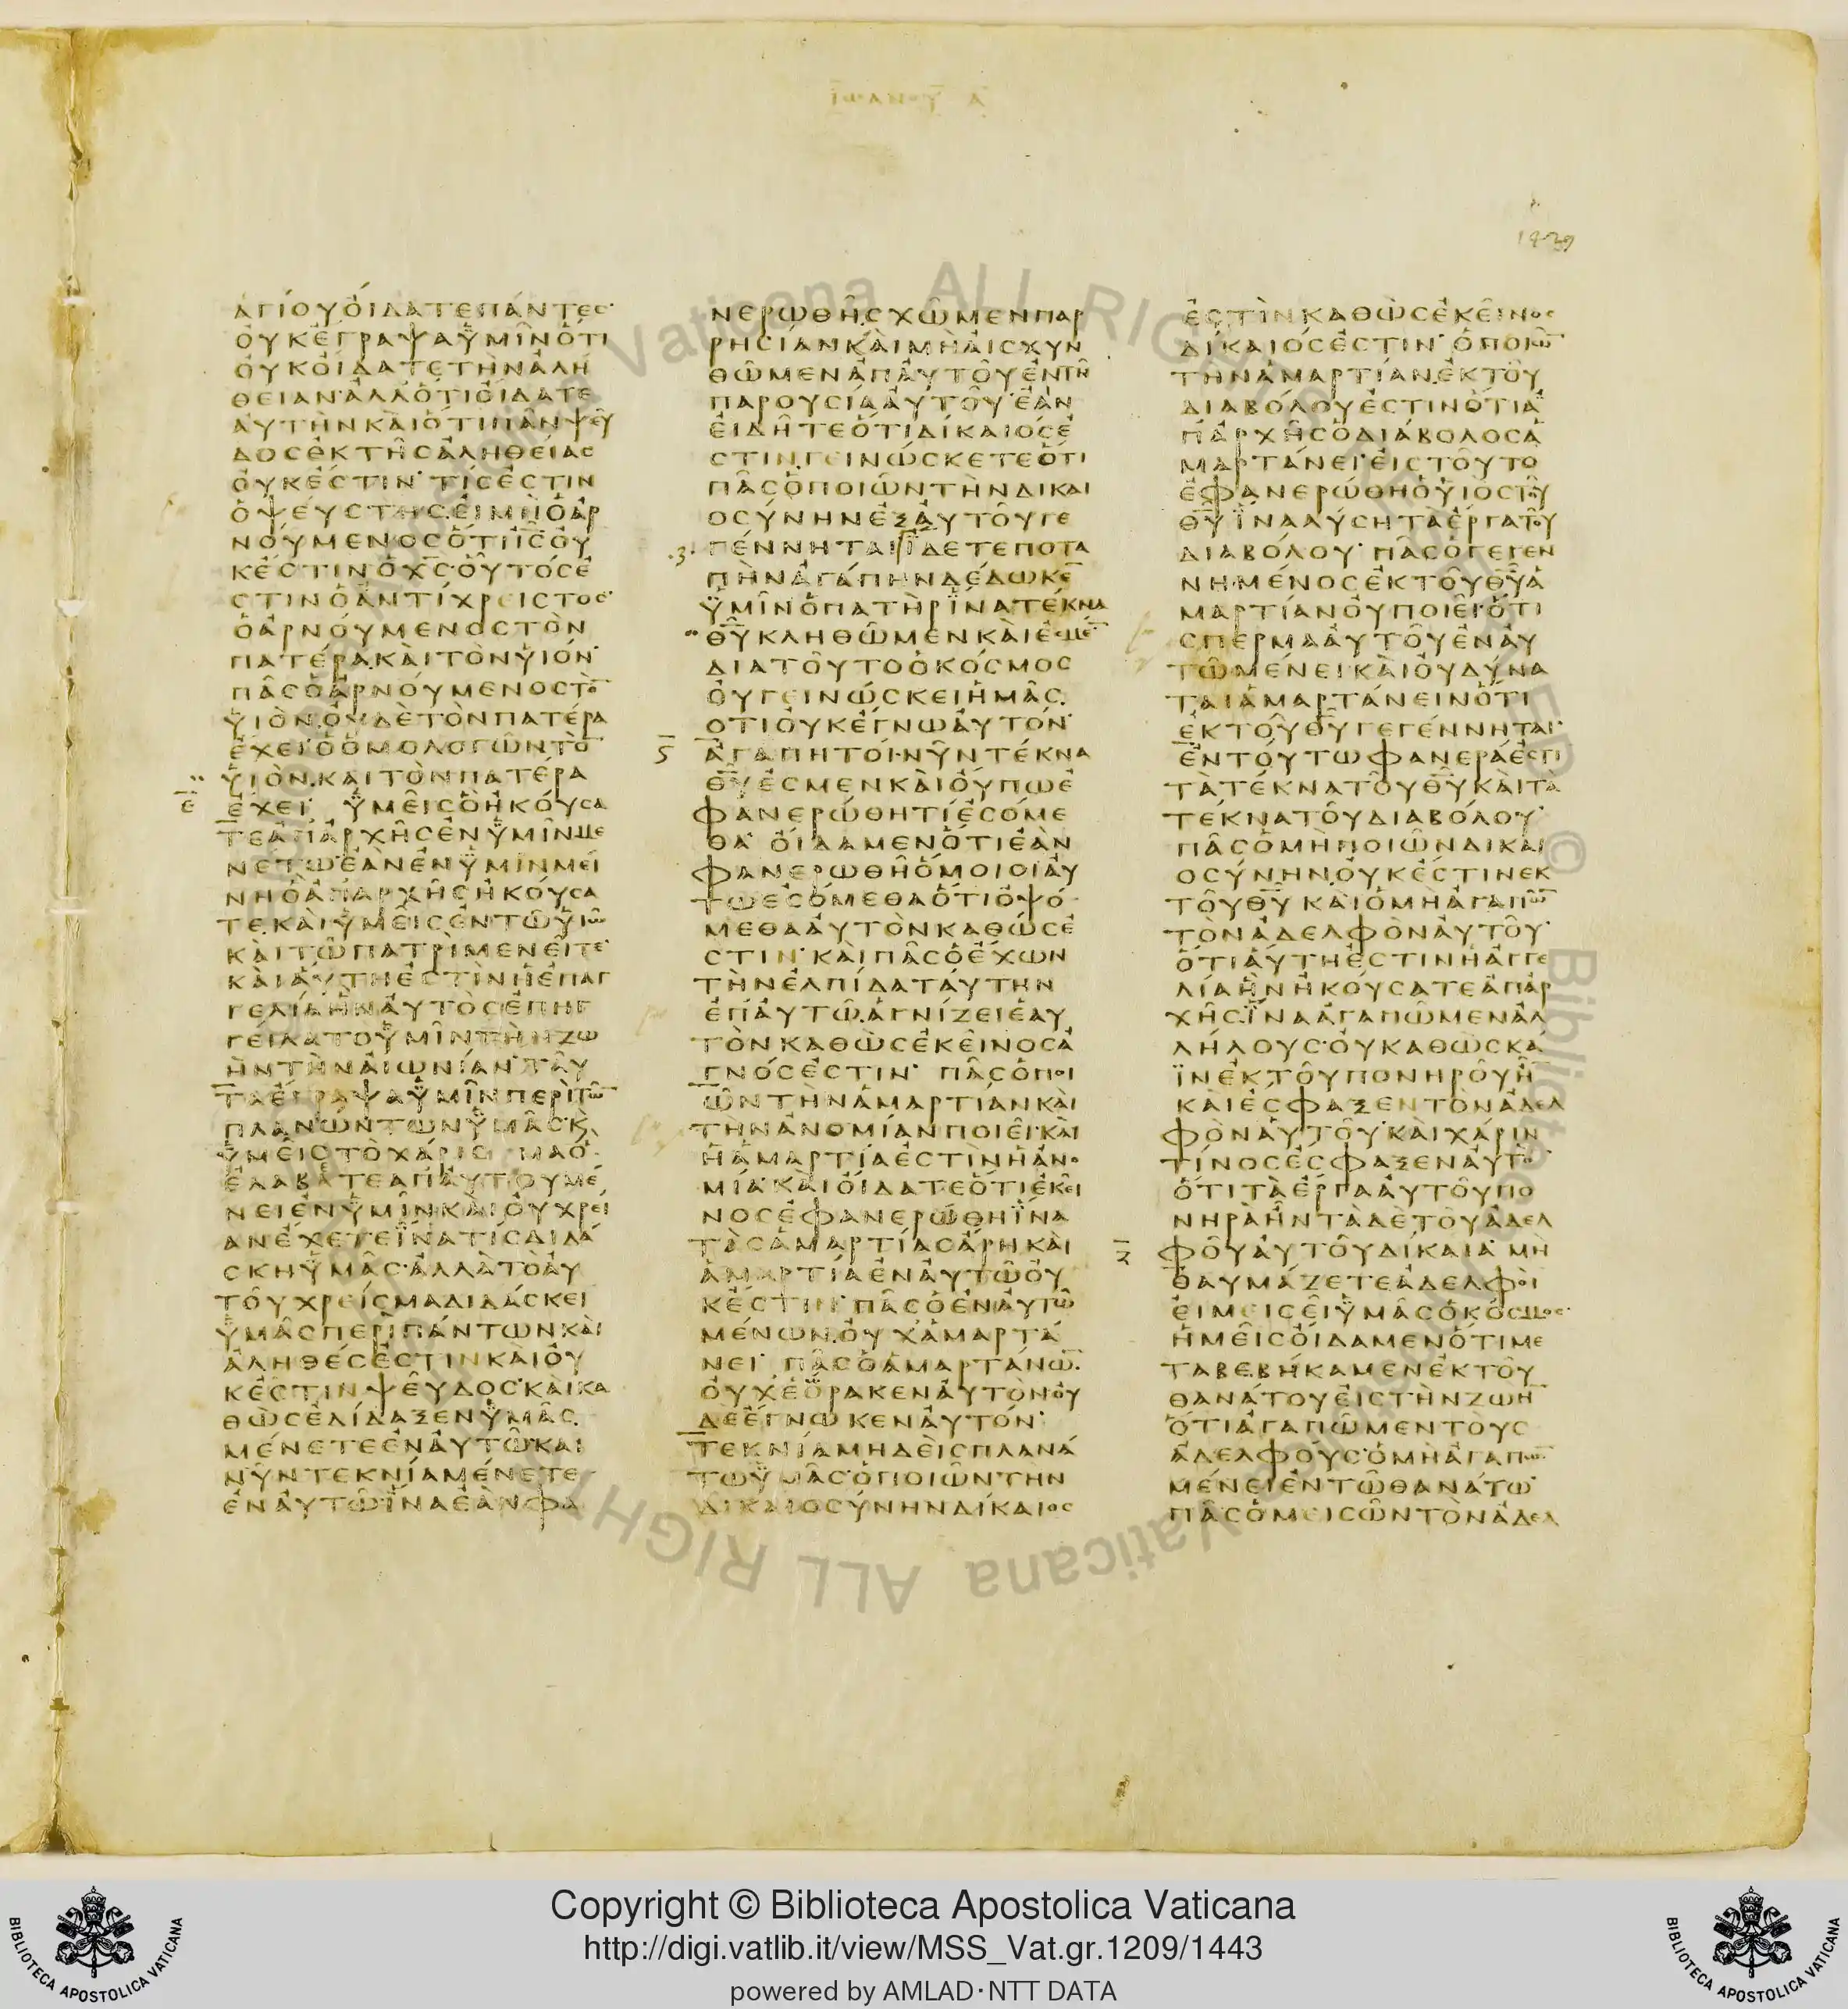 ἸΩΑΝΟΥ Α
1439
ΑΓΙΟΥΟΙΔΑΤΕΠΑΝΤΕΣ
ΟΥΚΕΓΡΑΨΑΥΜΙΝΟΤΙ
ΟΥΚΟΙΔΑΤΕΤΗΝΑΛΗ
ΘΕΙΑΝΑΛΛΟΤΙΟΙΔΑΤΕ
ΑΥΤΗΝΚΑΙΟΤΙΠΑΝΨΕΥ
ΔΟΣΕΚΤΗΣΑΛΗΘΕΙΑΣ
ΟΥΚΕΣΤΙΝ ΤΙΣΕΣΤΙΝ
ΟΨΕΥΣΤΗΣΕΙΜΗΟΑΡ
ΝΟΥΜΕΝΟΣΟΤΙΙΣΟΥ
ΚΕΣΤΙΝΟΧΣΟΥΤΟΣΕ
ΣΤΙΝΟΑΝΤΙΧΡΕΙΣΤΟΣ
ΟΑΡΝΟΥΜΕΝΟΣΤΟΝ
ΠΑΤΕΡΑΚΑΙΤΟΝΥΙΟΝ
ΠΑΣΟΑΡΝΟΥΜΕΝΟΣΤΟ
ΥΙΟΝΟΥΔΕΤΟΝΠΑΤΕΡΑ
ΕΧΕΙΟΟΜΟΛΟΓΩΝΤΟ
ΥΙΟΝΚΑΙΤΟΝΠΑΤΕΡΑ
Ε ΕΧΕΙ ΥΜΕΙΣΟΗΚΟΥΣΑ
ΤΕΑΠΑΡΧΗΣΕΝΥΜΙΝΜΕ
ΝΕΤΩΕΑΝΕΝΥΜΙΝΜΕΙ
ΝΗΟΑΠΑΡΧΗΣΗΚΟΥΣΑ
ΤΕΚΑΙΥΜΕΙΣΕΝΤΩΥΙΩ
ΚΑΙΤΩΠΑΤΡΙΜΕΝΕΙΤΕ
ΚΑΙΑΥΤΗΕΣΤΙΝΗΕΠΑΓ
ΓΕΛΙΑΗΝΑΥΤΟΣΕΠΗΓ
ΓΕΙΛΑΤΟΥΜΙΝΤΗΝΖΩ
ΗΝΤΗΝΑΙΩΝΙΑΝ ΤΑΥ
ΤΑΕΓΡΑΨΑΥΜΙΝΠΕΡΙΤΩ
ΠΛΑΝΩΝΤΩΝΥΜΑΣΚ
ΥΜΕΙΣΤΟΧΑΡΙΣ ΜΑΟ
ΕΛΑΒΑΤΕΑΠΑΥΤΟΥΜΕ
ΝΕΙΕΝΥΜΙΝΚΑΙΟΥΧΡΕΙ
ΑΝΕΧΕΤΕΙΝΑΤΙΣΔΙΔΑ
ΣΚΗΥΜΑΣΑΛΛΑΤΟΑΥ
ΤΟΥΧΡΕΙΣΜΑΔΙΔΑΣΚΕΙ
ΥΜΑΣΠΕΡΙΠΑΝΤΩΝΚΑΙ
ΑΛΗΘΕΣΕΣΤΙΝΚΑΙΟΥ
ΚΕΣΤΙΝΨΕΥΔΟΣΚΑΙΚΑ
ΘΩΣΕΔΙΔΑΞΕΝΥΜΑΣ
ΜΕΝΕΤΕΕΝΑΥΤΩΚΑΙ
ΝΥΝΤΕΚΝΙΑΜΕΝΕΤΕ
ΕΝΑΥΤΩΙΝΑΕΑΝΦΑ
ΝΕΡΩΘΗΣΧΩΜΕΝΠΑΡ
ΡΗΣΙΑΝΚΑΙΜΗΑΙΣΧΥΝ
ΘΩΜΕΝΑΠΑΥΤΟΥΕΝΤΗ
ΠΑΡΟΥΣΙΑΑΥΤΟΥΕΑΝ
ΕΙΔΗΤΕΟΤΙΔΙΚΑΙΟΣΕ
ΣΤΙΝΓΕΙΝΩΣΚΕΤΕΟΤΙ
ΠΑΣΟΠΟΙΩΝΤΗΝΔΙΚΑΙ
ΟΣΥΝΗΝΕΞΑΥΤΟΥΓΕ
.3. ΓΕΝΝΗΤΑΙ ΙΔΕΤΕΠΟΤΑ
ΠΗΝΑΓΑΠΗΝΔΕΔΩΚΕ
ΥΜΙΝΟΠΑΤΗΡΙΝΑΤΕΚΝΑ
ΘΥΚΛΗΘΩΜΕΝΚΑΙΕΣΜΕ
ΔΙΑΤΟΥΤΟΟΚΟΣΜΟΣ
ΟΥΓΕΙΝΩΣΚΕΙΗΜΑΣ
ΟΤΙΟΥΚΕΓΝΩΑΥΤΟΝ
Ϛ ΑΓΑΠΗΤΟΙΝΥΝΤΕΚΝΑ
ΘΥΕΣΜΕΝΚΑΙΟΥΠΩΕ
ΦΑΝΕΡΩΘΗΤΙΕΣΟΜΕ
ΘΑ ΟΙΔΑΜΕΝΟΤΙΕΑΝ
ΦΑΝΕΡΩΘΗΟΜΟΙΟΙΑΥ
ΤΩΕΣΟΜΕΘΑΟΤΙΟΨΟ
ΜΕΘΑΑΥΤΟΝΚΑΘΩΣΕ
ΣΤΙΝ ΚΑΙΠΑΣΟΕΧΩΝ
ΤΗΝΕΛΠΙΔΑΤΑΥΤΗΝ
ΕΠΑΥΤΩΑΓΝΙΖΕΙΕΑΥ
ΤΟΝΚΑΘΩΣΕΚΕΙΝΟΣΑ
ΓΝΟΣΕΣΤΙΝ ΠΑΣΟΠΟΙ
ΩΝΤΗΝΑΜΑΡΤΙΑΝΚΑΙ
ΤΗΝΑΝΟΜΙΑΝΠΟΙΕΙΚΑΙ
ΗΑΜΑΡΤΙΑΕΣΤΙΝΗΑΝΟ
ΜΙΑΚΑΙΟΙΔΑΤΕΟΤΙΕΚΕΙ
ΝΟΣΕΦΑΝΕΡΩΘΗΙΝΑ
ΤΑΣΑΜΑΡΤΙΑΣΑΡΗΚΑΙ
ΑΜΑΡΤΙΑΕΝΑΥΤΩΟΥ
ΚΕΣΤΙΝ ΠΑΣΟΕΝΑΥΤΩ
ΜΕΝΩΝΟΥΧΑΜΑΡΤΑ
ΝΕΙ ΠΑΣΟΑΜΑΡΤΑΝΩ
ΟΥΧΕΟΡΑΚΕΝΑΥΤΟΝΟΥ
ΔΕΕΓΝΩΚΕΝΑΥΤΟΝ
ΤΕΚΝΙΑΜΗΔΕΙΣΠΛΑΝΑ
ΤΩΥΜΑΣΟΠΟΙΩΝΤΗΝ
ΔΙΚΑΙΟΣΥΝΗΝΔΙΚΑΙΟΣ
ΕΣΤΙΝΚΑΘΩΣΕΚΕΙΝΟΣ
ΔΙΚΑΙΟΣΕΣΤΙΝ ΟΠΟΙΩ
ΤΗΝΑΜΑΡΤΙΑΝΕΚΤΟΥ
ΔΙΑΒΟΛΟΥΕΣΤΙΝΟΤΙΑ
ΠΑΡΧΗΣΟΔΙΑΒΟΛΟΣΑ
ΜΑΡΤΑΝΕΙΕΙΣΤΟΥΤΟ
ΕΦΑΝΕΡΩΘΗΟΥΙΟΣΤΟΥ
ΘΥΙΝΑΛΥΣΗΤΑΕΡΓΑΤΟΥ
ΔΙΑΒΟΛΟΥ ΠΑΣΟΓΕΓΕΝ
ΝΗΜΕΝΟΣΕΚΤΟΥΘΥΑ
ΜΑΡΤΙΑΝΟΥΠΟΙΕΙΟΤΙ
ΣΠΕΡΜΑΑΥΤΟΥΕΝΑΥ
ΤΩΜΕΝΕΙΚΑΙΟΥΔΥΝΑ
ΤΑΙΑΜΑΡΤΑΝΕΙΝΟΤΙ
ΕΚΤΟΥΘΥΓΕΓΕΝΝΗΤΑΙ
ΕΝΤΟΥΤΩΦΑΝΕΡΑΕΣΤΙ
ΤΑΤΕΚΝΑΤΟΥΘΥΚΑΙΤΑ
ΤΕΚΝΑΤΟΥΔΙΑΒΟΛΟΥ
ΠΑΣΟΜΗΠΟΙΩΝΔΙΚΑΙ
ΟΣΥΝΗΝΟΥΚΕΣΤΙΝΕΚ
ΤΟΥΘΥΚΑΙΟΜΗΑΓΑΠΩ
ΤΟΝΑΔΕΛΦΟΝΑΥΤΟΥ
ΟΤΙΑΥΤΗΕΣΤΙΝΗΑΓΓΕ
ΛΙΑΗΝΗΚΟΥΣΑΤΕΑΠΑΡ
ΧΗΣΙΝΑΑΓΑΠΩΜΕΝΑΛ
ΛΗΛΟΥΣΟΥΚΑΘΩΣΚΑ
ΙΝΕΚΤΟΥΠΟΝΗΡΟΥΗ
ΚΑΙΕΣΦΑΞΕΝΤΟΝΑΔΕΛ
ΦΟΝΑΥΤΟΥΚΑΙΧΑΡΙΝ
ΤΙΝΟΣΕΣΦΑΞΕΝΑΥΤΟ
ΟΤΙΤΑΕΡΓΑΑΥΤΟΥΠΟ
ΝΗΡΑΗΝΤΑΔΕΤΟΥΑΔΕΛ
Ζ ΦΟΥΑΥΤΟΥΔΙΚΑΙΑ ΜΗ
ΘΑΥΜΑΖΕΤΕΑΔΕΛΦΟΙ
ΕΙΜΕΙΣΕΙΥΜΑΣΟΚΟΣΜΟΣ
ΗΜΕΙΣΟΙΔΑΜΕΝΟΤΙΜΕ
ΤΑΒΕΒΗΚΑΜΕΝΕΚΤΟΥ
ΘΑΝΑΤΟΥΕΙΣΤΗΝΖΩΗ
ΟΤΙΑΓΑΠΩΜΕΝΤΟΥΣ
ΑΔΕΛΦΟΥΣΟΜΗΑΓΑΠΩ
ΜΕΝΕΙΕΝΤΩΘΑΝΑΤΩ
ΠΑΣΟΜΕΙΣΩΝΤΟΝΑΔΕΛ
Vaticana ALL RIGHTS
© Biblioteca
Vaticana ALL RIGHTS
Copyright © Biblioteca Apostolica Vaticana
http://digi.vatlib.it/view/MSS_Vat.gr.1209/1443
powered by AMLAD·NTT DATA
BIBLIOTECA APOSTOLICA VATICANA
BIBLIOTECA APOSTOLICA VATICANA